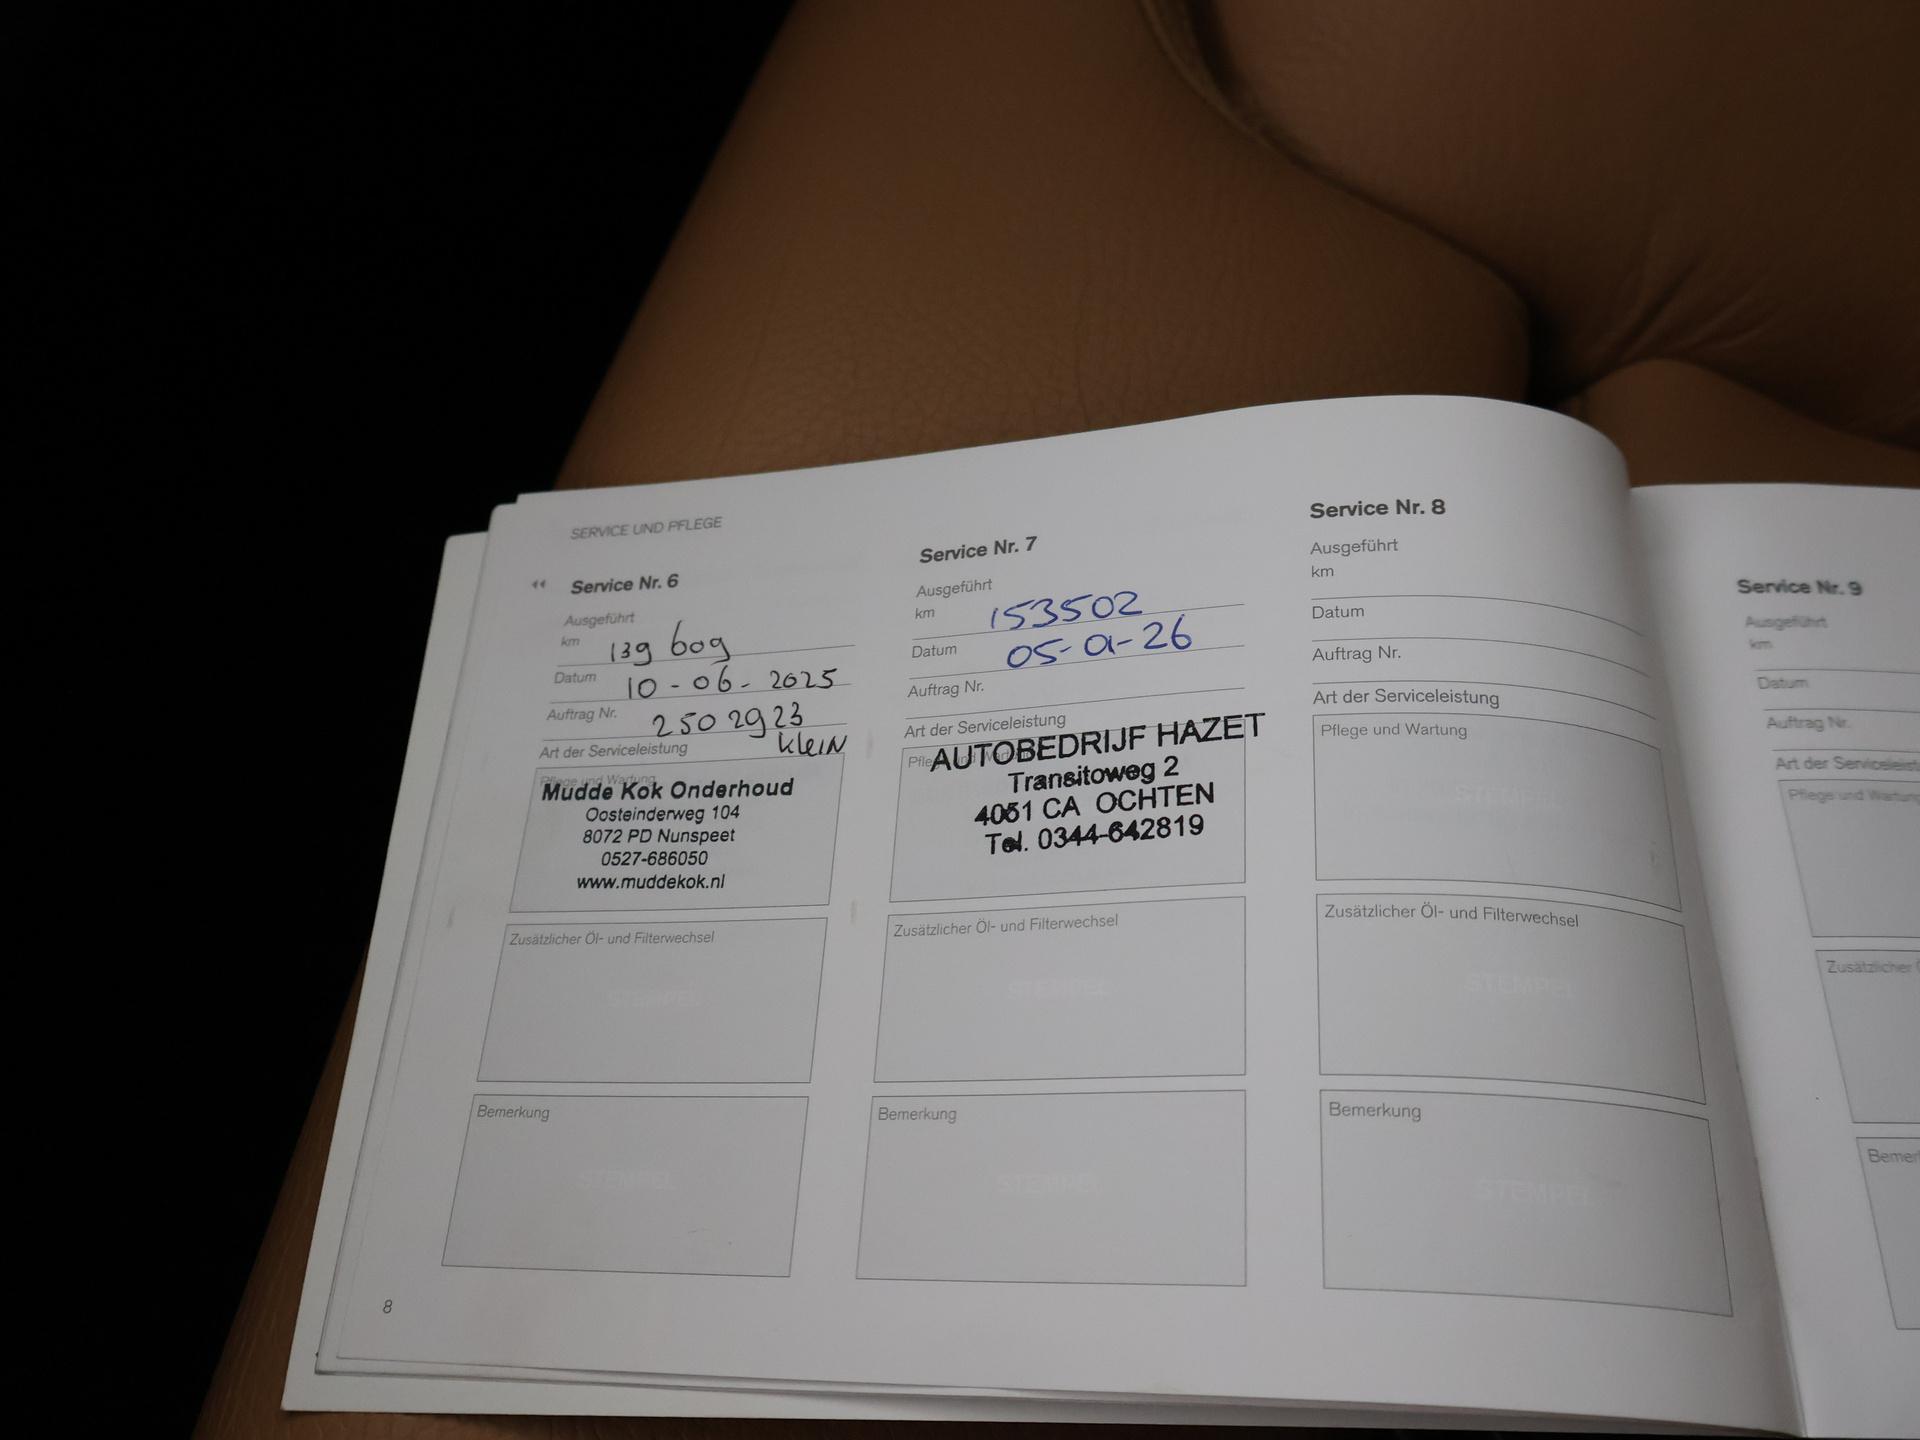 SERVICE UND PFLEGE
Service Nr. 6
Ausgeführt
km 139 609
Datum 10-06-2025
Auftrag Nr. 2502923
Art der Serviceleistung klein
Pflege und Wartung
Mudde Kok Onderhoud
Oosteinderweg 104
8072 PD Nunspeet
0527-686050
www.muddekok.nl
Zusätzlicher Öl- und Filterwechsel
STEMPEL
Bemerkung
STEMPEL
8
Service Nr. 7
Ausgeführt
km 153502
Datum 05-01-26
Auftrag Nr.
Art der Serviceleistung
Pflege und Wartung
AUTOBEDRIJF HAZET
Transitoweg 2
4051 CA OCHTEN
Tel. 0344-642819
Zusätzlicher Öl- und Filterwechsel
STEMPEL
Bemerkung
STEMPEL
Service Nr. 8
Ausgeführt
km
Datum
Auftrag Nr.
Art der Serviceleistung
Pflege und Wartung
STEMPEL
Zusätzlicher Öl- und Filterwechsel
STEMPEL
Bemerkung
STEMPEL
Service Nr. 9
Ausgeführt
km
Datum
Auftrag Nr.
Art der Serviceleist
Pflege und Wartung
Zusätzlicher Ö
Bemer